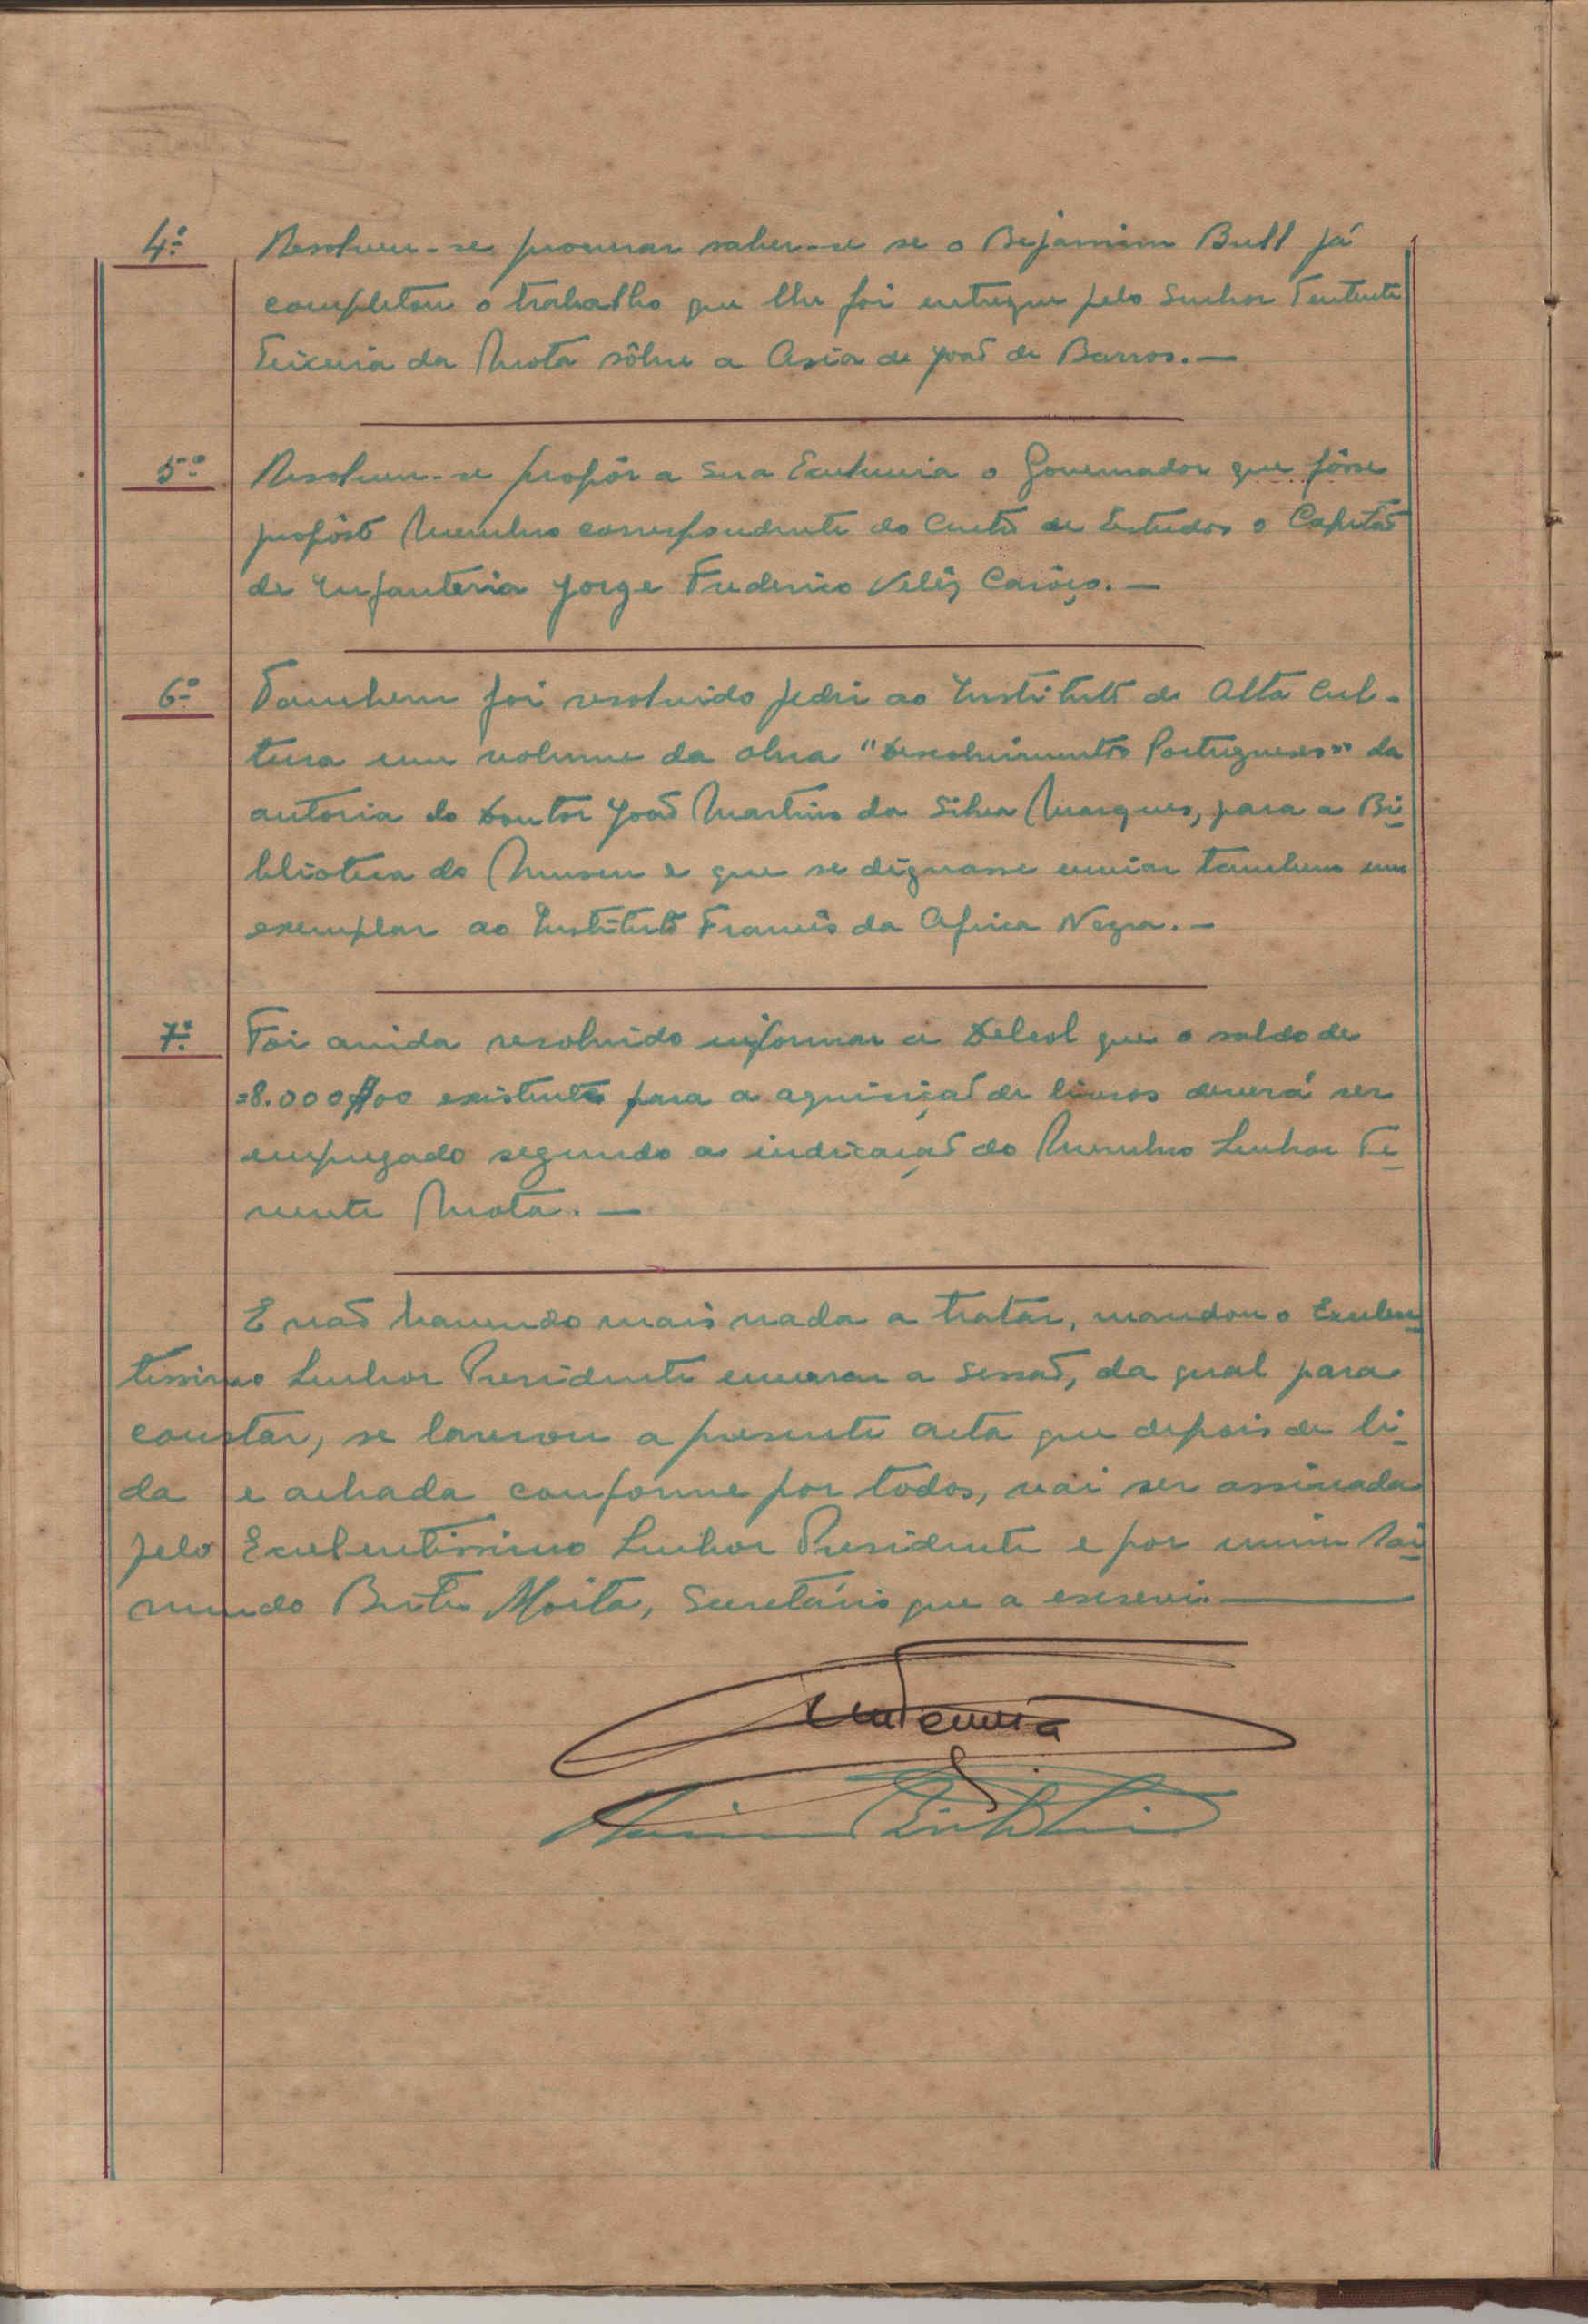 4.º Resolveu-se procurar saber-se se o Bejamim Bull já
completou o trabalho que lhe foi entregue pelo Senhor Tentente
Teixeira da Mota sôbre a Asia de João de Barros.—
5.º Resolveu-se propôr a Sua Excelencia o Governador que fôsse
propôsto Membro correspondente do Centro de Estudos o Capitão
de Infanteria Jorge Frederico Veléz Carôço.—
6.º Tambem foi resolvido pedir ao Instituto de Alta Cul-
tura um volume da obra "Descobrimentos Portugueses" da
autoria do Doutor João Martins da Silva Marques, para a Bi-
blioteca do Museu e que se dignasse enviar tambem um
exemplar ao Instituto Francês da Africa Negra.—
7.º Foi ainda resolvido informar a que o saldo de
=8.000$00 existente para a aquisição de livros deverá ser
empregado segundo a indicação do Membro Senhor Te-
nente Mota.—
E não havendo mais nada a tratar, mandou o Excelen-
tissimo Senhor Presidente encerrar a Sessão, da qual para
constar, se lavrou a presente acta que depois de li-
da e achada conforme por todos, vai ser assinada
pelo Excelentissimo Senhor Presidente e por mim Rai-
mundo Brito Moita, Secretário que a escrevi.